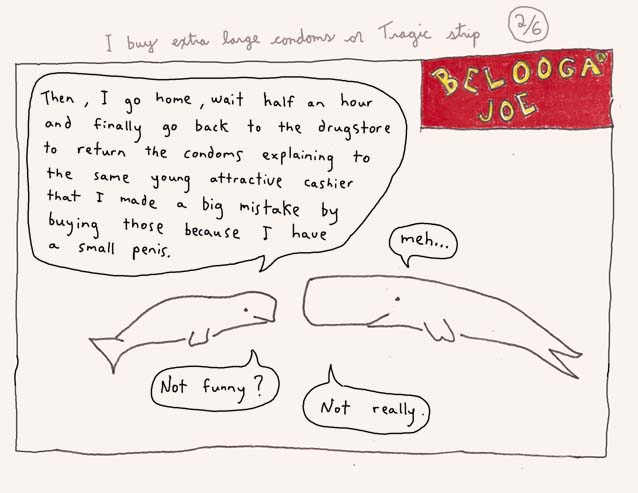 I buy extra large condoms or Tragic strip
2/6
BELOOGA
JOE
Then, I go home, wait half an hour
and finally go back to the drugstore
to return the condoms explaining to
the same young attractive cashier
that I made a big mistake by
buying those because I have
a small penis.
meh...
Not funny?
Not really.